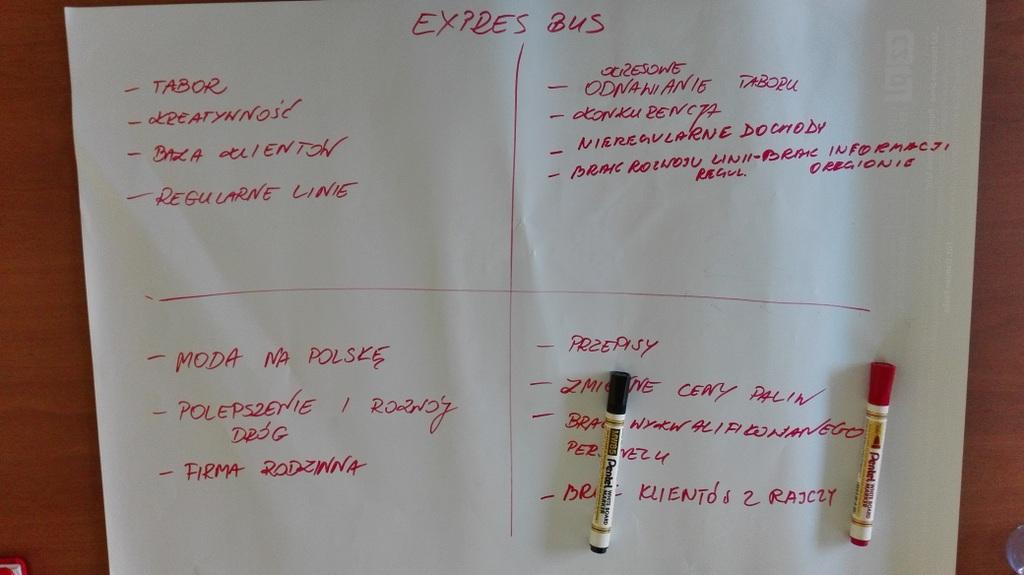 EXPRES BUS
- TABOR
- KREATYWNOŚĆ
- BAZA KLIENTÓW
- REGULARNE LINIE
OKRESOWE
- ODNAWIANIE TABORU
- KONKURENCJA
- NIEREGULARNE DOCHODY
- BRAK ROZWOJU LINII - BRAK INFORMACJI
REGUL. O REGIONIE
- MODA NA POLSKĘ
- POLEPSZENIE I ROZWÓJ
DRÓG
- FIRMA RODZINNA
- PRZEPISY
- CENY PALIW
- WYKWALIFIKOWANEGO
- KLIENTÓW Z RAJCZY
Pentel
Pentel